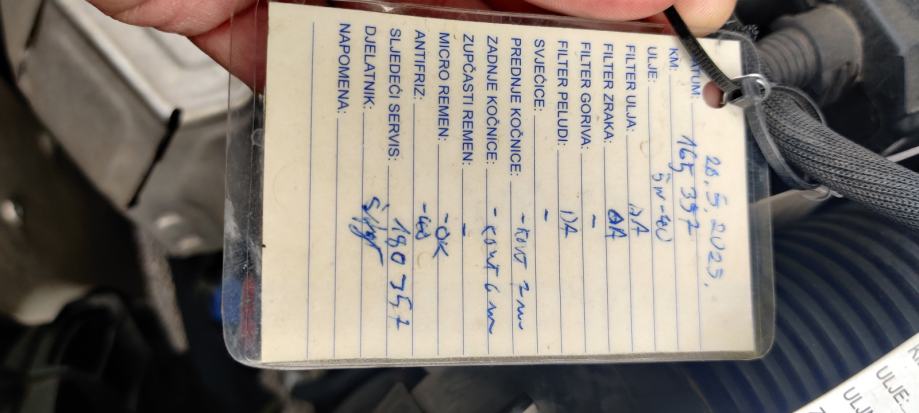 DATUM: 20.5.2023.
KM: 165 357
ULJE: 5W-40
FILTER ULJA: DA
FILTER ZRAKA: DA
FILTER GORIVA: -
FILTER PELUDI: DA
SVJEĆICE: -
PREDNJE KOČNICE: -
ZADNJE KOČNICE: -
ZUPČASTI REMEN: -
MICRO REMEN: -OK
ANTIFRIZ: -40
SLJEDEĆI SERVIS: 180 357
DJELATNIK:
NAPOMENA:
ULJE: